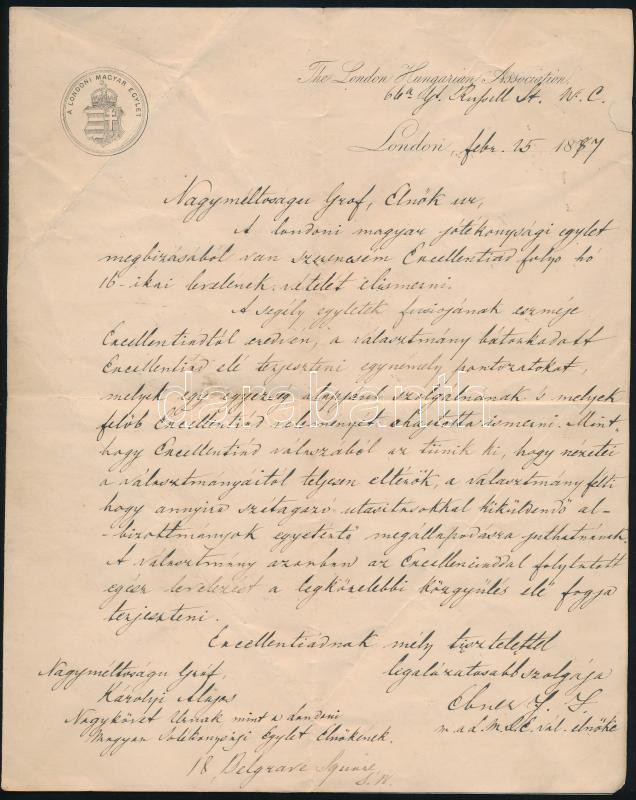 A LONDONI MAGYAR EGYLET
The London Hungarian Association.
66a Gt. Russell St. W. C.
London, febr. 25 1887
Nagyméltoságu Grof, Elnök ur,
A londoni magyar jótékonysági egylet
megbizásából van szerencsém Excellentiád folyó hó
16-ikai levelének vételét elismerni.
A segély egyletek fusiojának eszméje
Excellentiádtól eredvén, a választmány bátorkodott
Excellentiád elé terjeszteni egynémely pontozatokat,
melyek egy egyezség alapjául szolgálnának s melyek
felöb Excellentiád véleményét ohajtotta ismerni. Mint-
hogy Excellentiád válaszából az tünik ki, hogy nézetei
a választmányáitól teljesen eltérők, a választmány félti
hogy annyira szétágazó utasitásokkal kiküldendő al-
-bizottmányok egyetértő megállapodásra juthatnának.
A választmány azonban az Excellenciáddal folytatott
egész levelezést a legközelebbi közgyülés elé fogja
terjeszteni.
Excellentiádnak mély tisztelettel
legalázatosabb szolgája
Ebner J. F.
m. a d. M. S. E. vál. elnöke
Nagyméltoságu Gróf,
Károlyi Alajos
Nagykövet Urnak mint a londoni
Magyar Jotekonysági Egylet Elnökének.
18, Belgrave Square
S. W.
darabanth